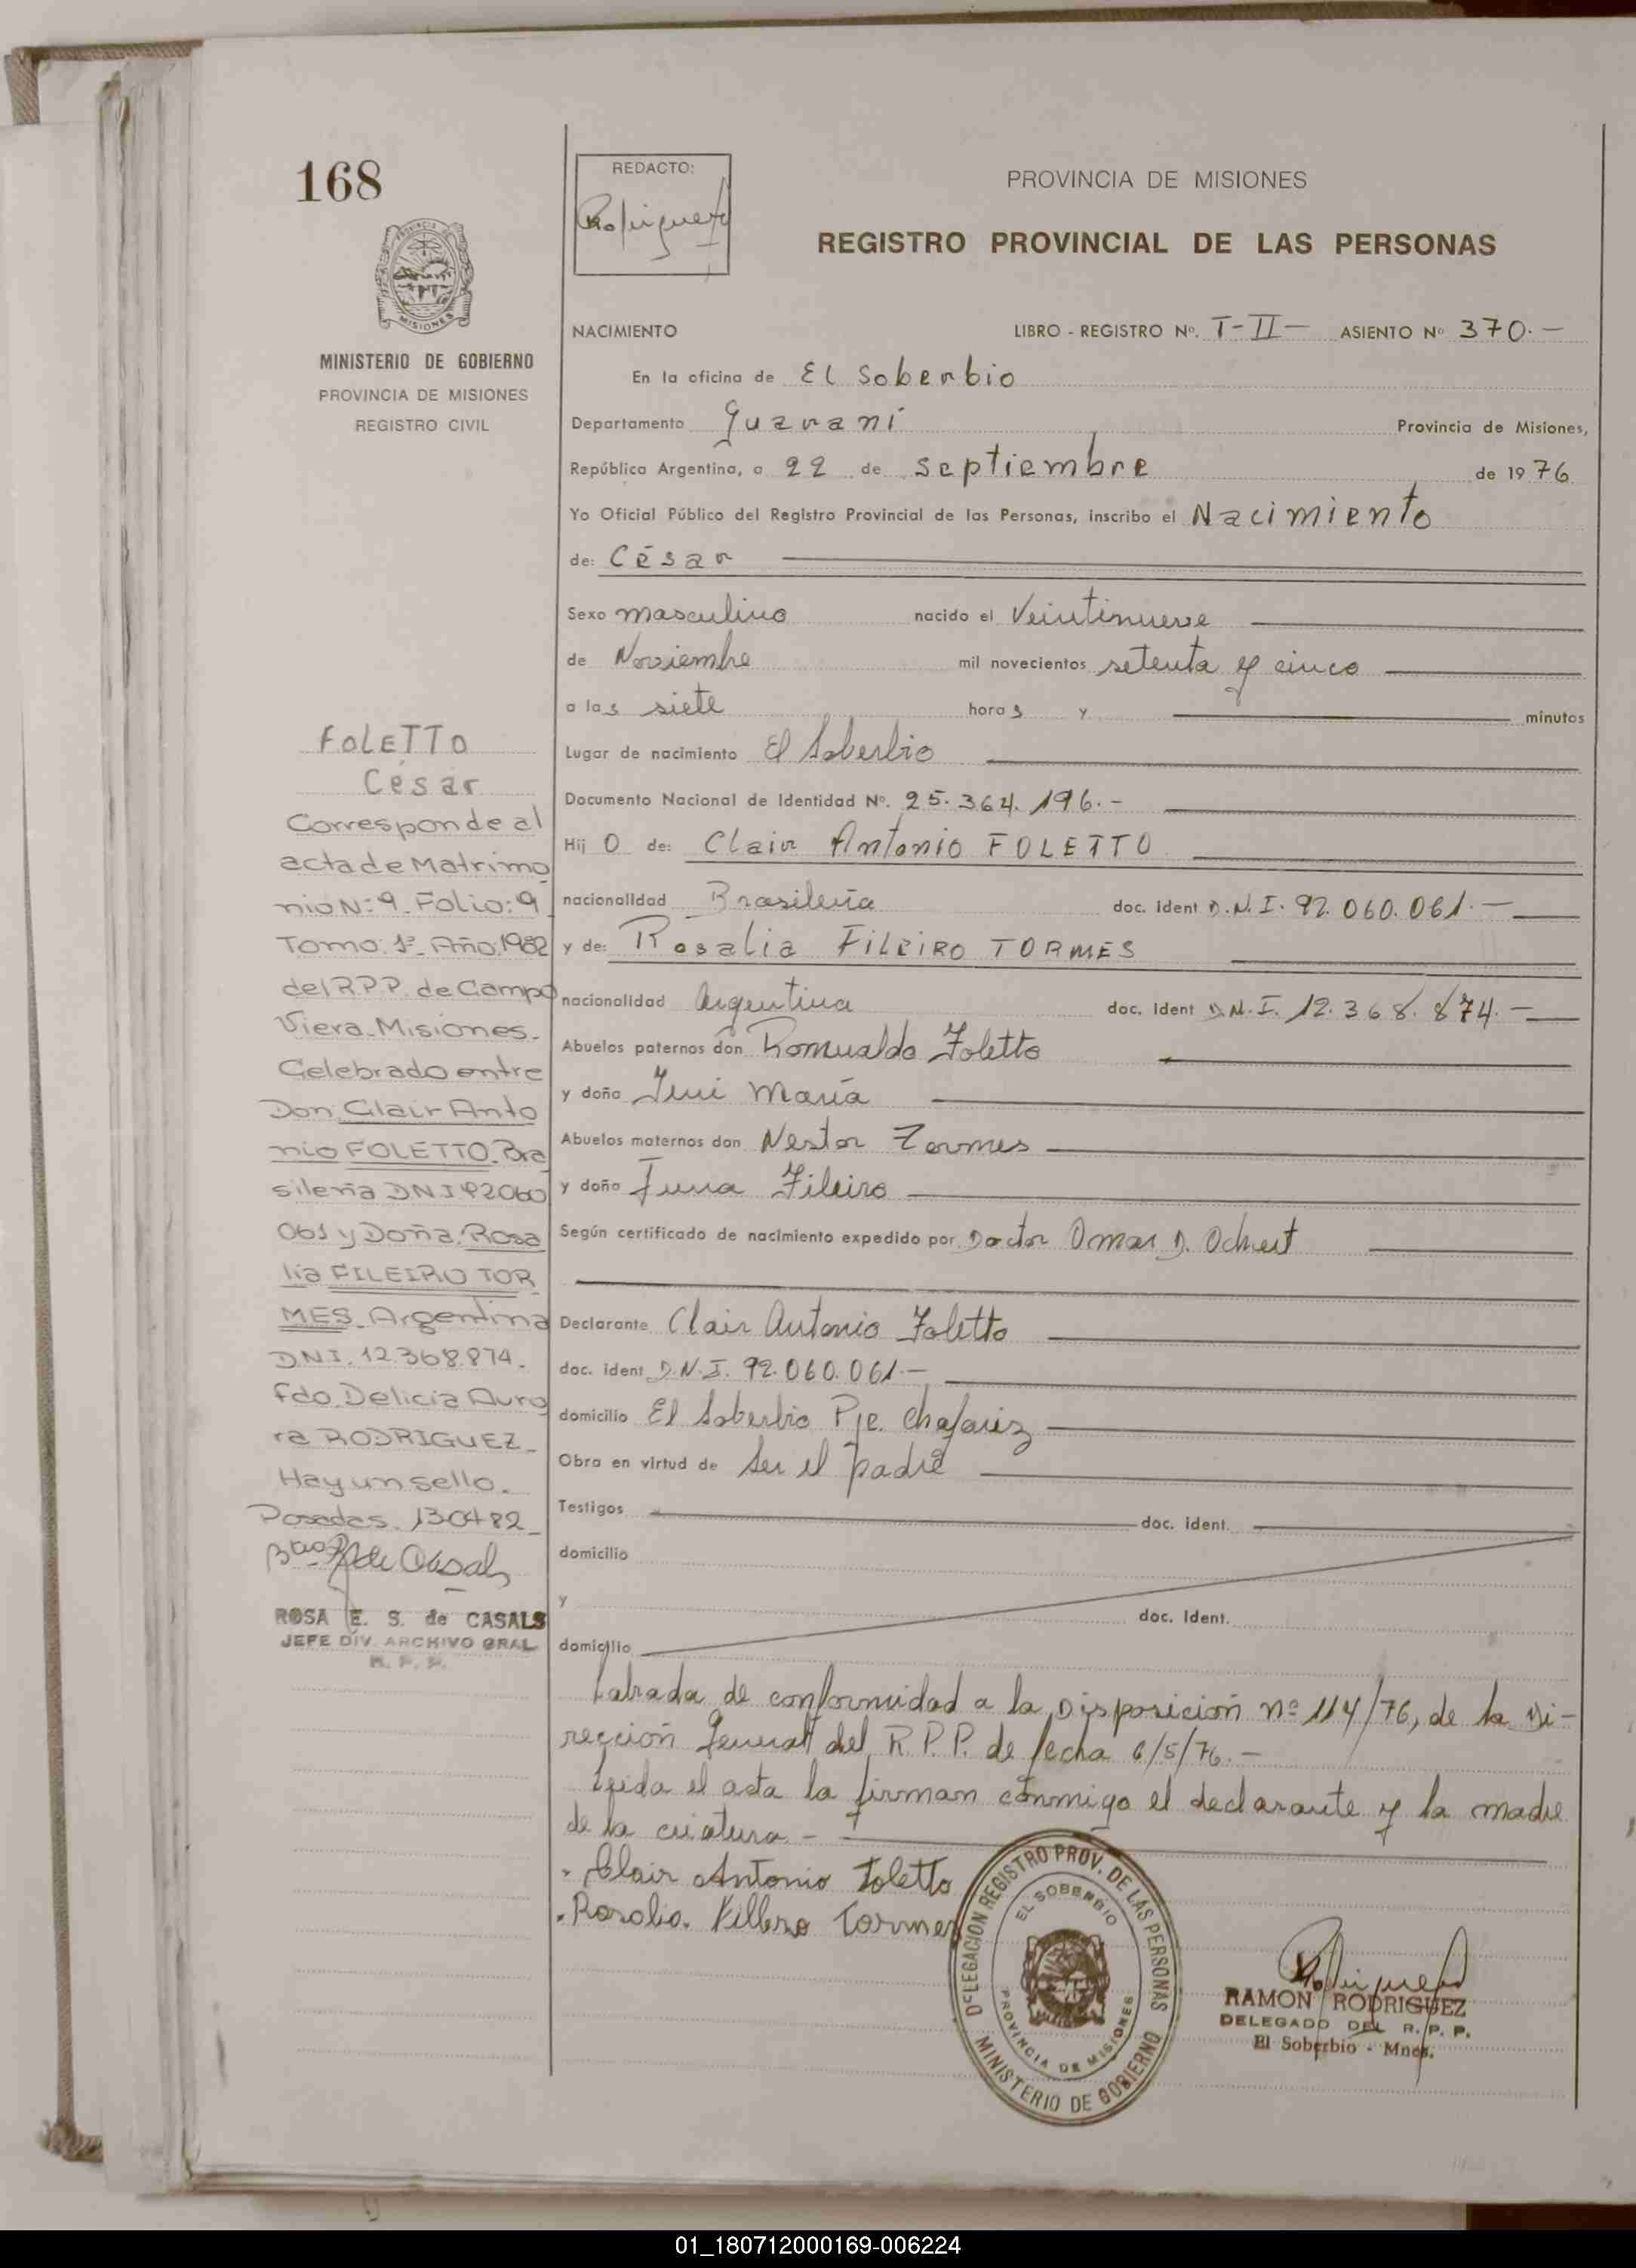 168
MISIONES
MINISTERIO DE GOBIERNO
PROVINCIA DE MISIONES
REGISTRO CIVIL
FOLETTO
César
Corresponde al
acta de Matrimo
nio N: 9. Folio: 9
Tomo. 1º. Año. 1982
del R.P.P. de Campo
Viera. Misiones.
Celebrado entre
Don Clair Anto
nio FOLETTO. Bra
sileña DNI 92060
061 y Doña. Rosa
lia FILEIRO TOR
MES. Argentina
D.N.I. 12.368.874.
fdo. Delicia Auro
ra RODRIGUEZ.
Hay un sello.
Posadas. 13-04-82
de Casals
ROSA E. S. de CASALS
JEFE DIV. ARCHIVO GRAL.
R. P. P.
REDACTO:
Rodriguez
PROVINCIA DE MISIONES
REGISTRO PROVINCIAL DE LAS PERSONAS
NACIMIENTO LIBRO - REGISTRO Nº. T-II- ASIENTO Nº 370.-
En la oficina de El Soberbio
Departamento Guaraní Provincia de Misiones,
República Argentina, a 22 de septiembre de 1976
Yo Oficial Público del Registro Provincial de las Personas, inscribo el Nacimiento
de: César
Sexo masculino nacido el Veintinueve
de Noviembre mil novecientos setenta y cinco
a las siete horas y minutos
Lugar de nacimiento El Soberbio
Documento Nacional de Identidad Nº. 25.364.196.-
Hijo de: Clair Antonio FOLETTO
nacionalidad Brasileña doc. ident D.N.I. 92.060.061.-
y de: Rosalia FILEIRO TORMES
nacionalidad Argentina doc. ident D.N.I. 12.368.874.-
Abuelos paternos don Romualdo Foletto
y doña María
Abuelos maternos don Nestor Tormes
y doña Fileiro
Según certificado de nacimiento expedido por Doctor Omar D.
Declarante Clair Antonio Foletto
doc. ident D.N.I. 92.060.061.-
domicilio El Soberbio Pje. Chafariz
Obra en virtud de Ser el padre
Testigos doc. ident.
domicilio
y doc. Ident.
domicilio
Labrada de conformidad a la Disposición nº 114/76, de la Di-
rección General del R.P.P. de fecha 6/5/76.-
Leida el acta la firman conmigo el declarante y la madre
de la criatura.-
Clair Antonio Foletto
Rosalia. Tormes
DELEGACION REGISTRO PROV. DE LAS PERSONAS
EL SOBERBIO
PROVINCIA DE MISIONES
MINISTERIO DE GOBIERNO
Rodriguez
RAMON RODRIGUEZ
DELEGADO DEL R. P. P.
El Soberbio - Mnes.
01_180712000169-006224